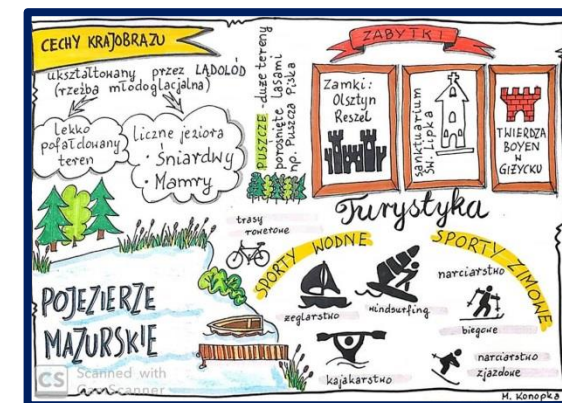 CECHY KRAJOBRAZU
ukształtowany przez LĄDOLÓD
(rzeźba młodoglacjalna)
Lekko
pofałdowany
teren
liczne jeziora
• Śniardwy
• Mamry
PUSZCZE - duże tereny
porośnięte lasami
np. Puszcza Piska
ZABYTKI
Zamki:
Olsztyn
Reszel
sanktuarium
Św. Lipka
TWIERDZA
BOYEN
W
GIŻYCKU
Turystyka
trasy
rowerowe
SPORTY WODNE
żeglarstwo
windsurfing
kajakarstwo
SPORTY ZIMOWE
narciarstwo
biegowe
narciarstwo
zjazdowe
POJEZIERZE
MAZURSKIE
CS Scanned with
CamScanner
M. Konopka